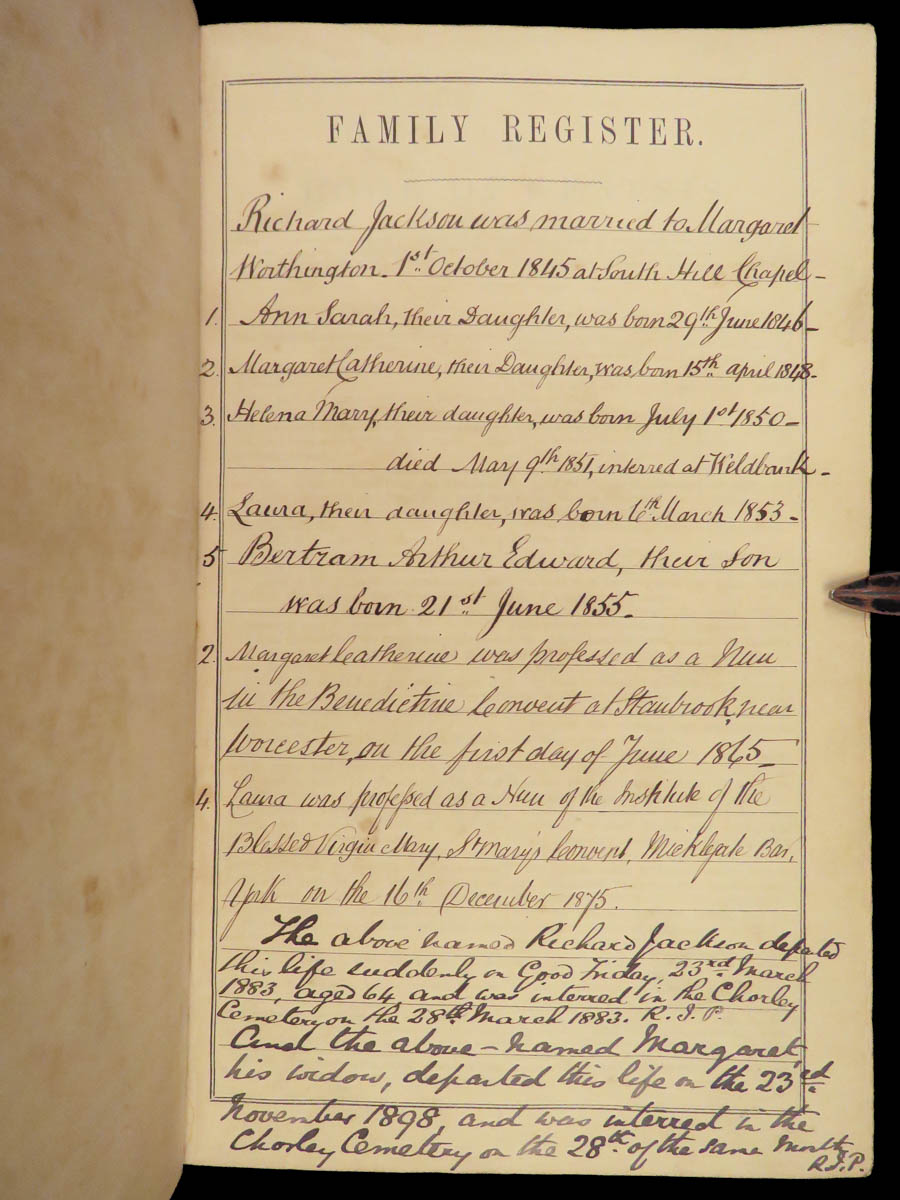 FAMILY REGISTER.
Richard Jackson was married to Margaret
Worthington. 1st. October 1845 at South Hill Chapel -
1. Ann Sarah, their Daughter, was born 29th. June 1846 -
2. Margaret Catherine, their Daughter, was born 15th. april 1848 -
3. Helena Mary, their daughter, was born July 1st 1850 -
died May 9th. 1851, interred at Weldbank -
4. Laura, their daughter, was born 6th. March 1853 -
5 Bertram Arthur Edward, their Son
was born 21st. June 1855 -
2. Margaret Catherine was professed as a Nun
in the Benedictine Convent at Stanbrook, near
Worcester, on the first day of June 1865 -
4. Laura was professed as a Nun of the Institute of the
Blessed Virgin Mary, St Mary's Convent, Micklegate Bar,
York on the 16th. December 1875.
The above named Richard Jackson departed
this life suddenly on Good Friday, 23rd March
1883, aged 64, and was interred in the Chorley
Cemetery on the 28th. March 1883. R. I. P.
And the above - named Margaret,
his widow, departed this life on the 23rd.
November 1898, and was interred in the
Chorley Cemetery on the 28th. of the same Month
R.I.P.